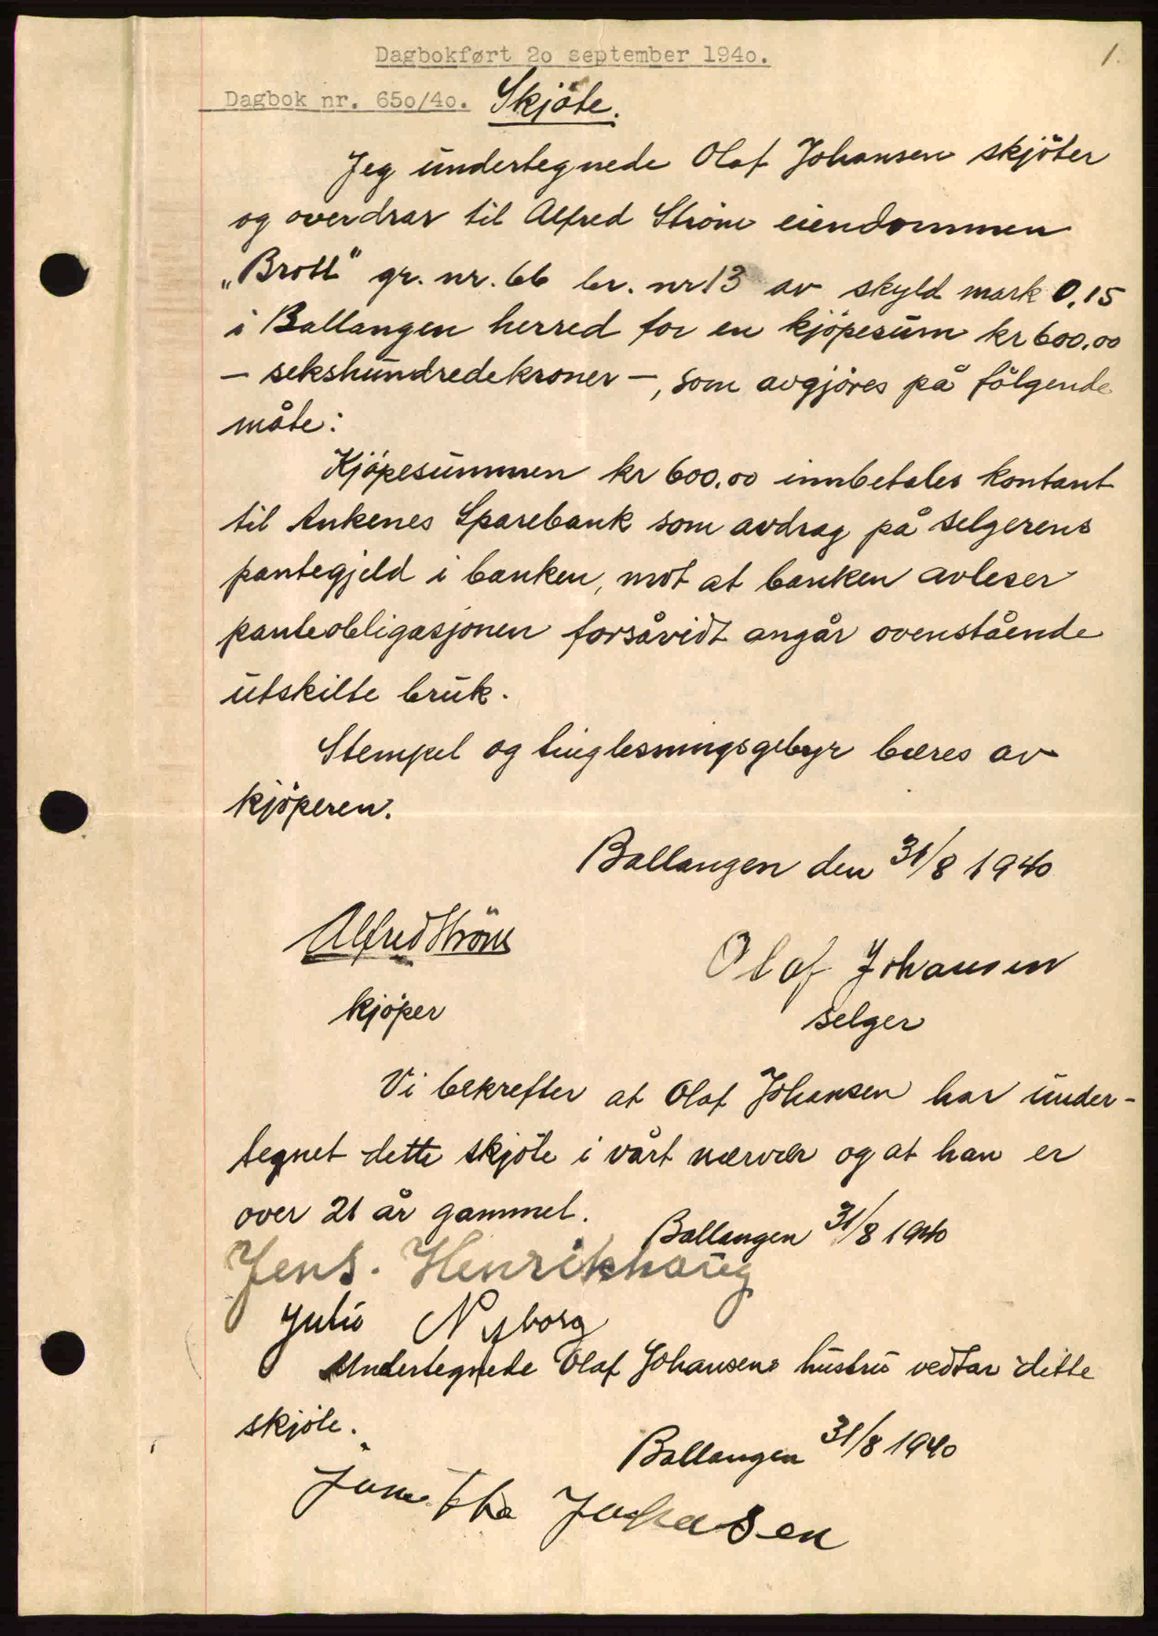 Dagbokført 20 september 1940.
1.
Dagbok nr. 650/40. Skjöte.
Jeg undertegnede Olaf Johansen skjöter
og overdrar til Alfred Ström eiendommen
„Brott" gr. nr. 66 br. nr 13 av skyld mark 0,15
i Ballangen herred for en kjöpesum kr 600.00
– sekshundredekroner –, som avgjöres på fölgende
måte:
Kjöpesummen kr 600.00 innbetales kontant
til Ankenes Sparebank som avdrag på selgerens
pantegjeld i banken, mot at banken avleser
panteobligasjonen forsåvidt angår ovenstående
utskilte bruk.
Stempel og tinglesningsgebyr bæres av
kjöperen.
Ballangen den 31/8 1940
Alfred Ström
Olaf Johansen
kjöper
selger
Vi bekrefter at Olaf Johansen har under-
tegnet dette skjöte i vårt nærvær og at han er
over 21 år gammel.
Ballangen 31/8 1940
Jens. Henrikhaug
Nyborg
Undertegnede Olaf Johansens hustru vedtar dette
skjöte.
Ballangen 31/8 1940
Johansen